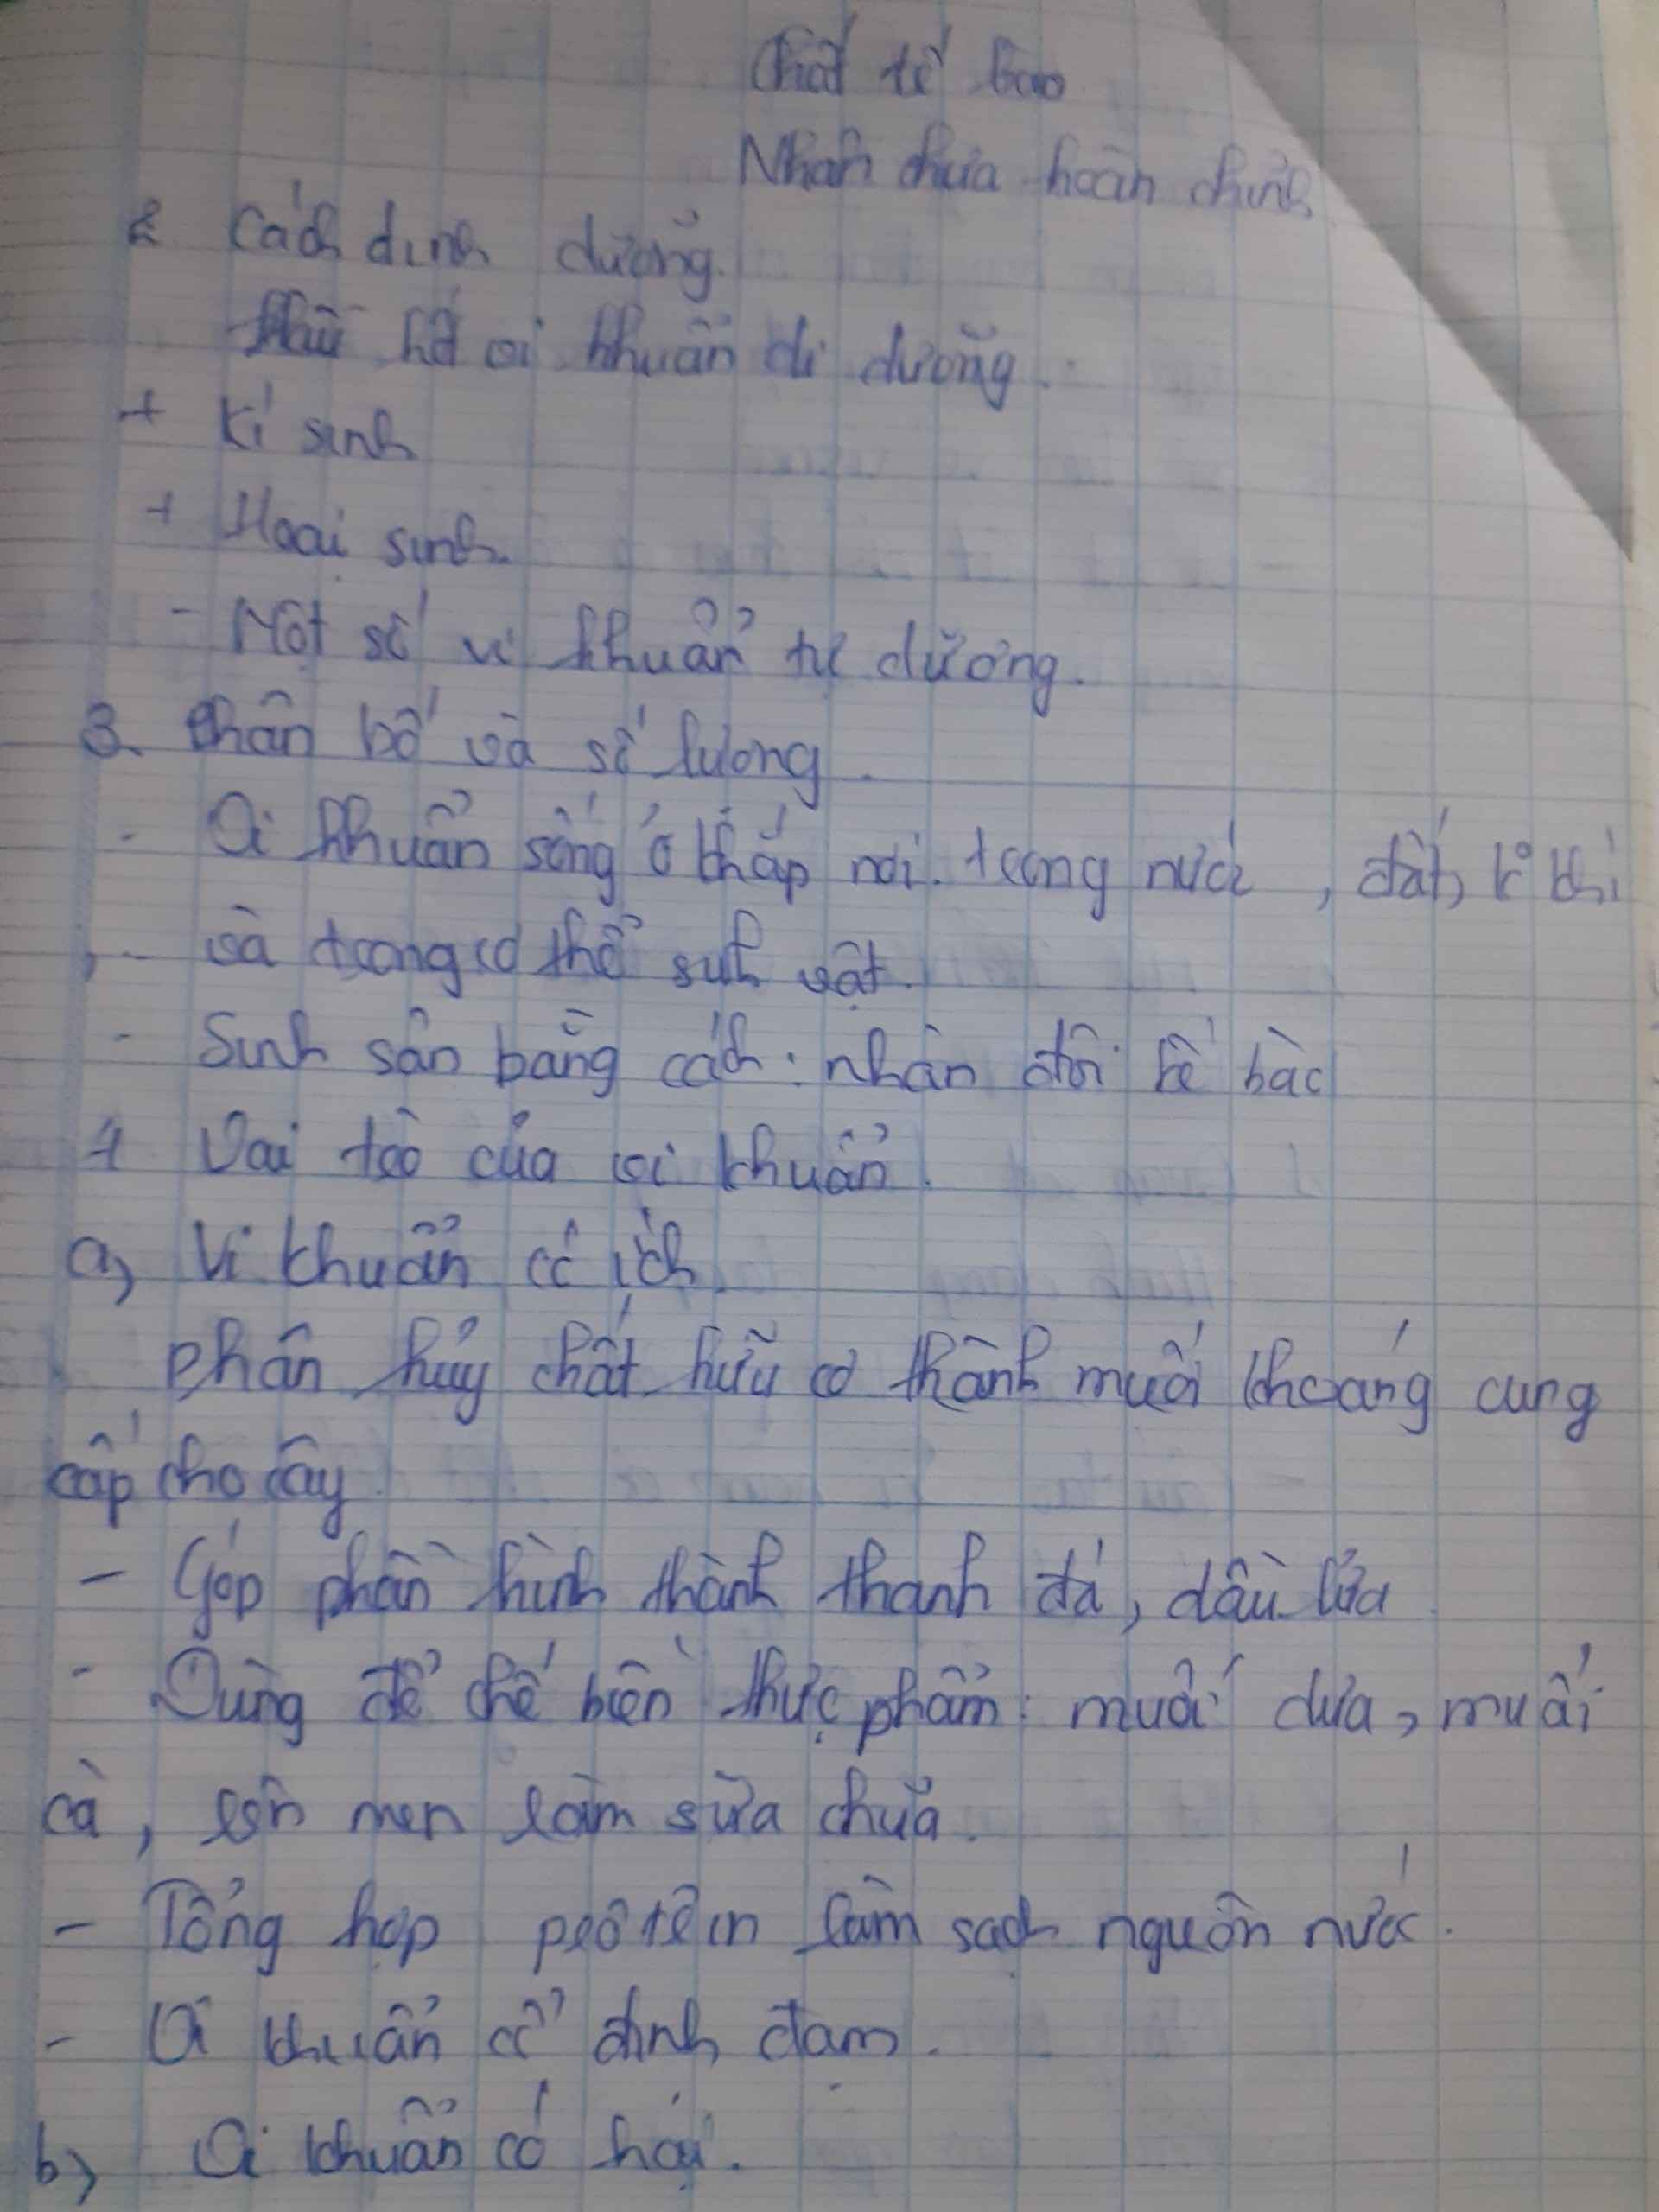 Chất tế bào
Nhân chưa hoàn chỉnh
2 Cách dinh dưỡng.
Hầu hết vi khuẩn dị dưỡng.
+ Kí sinh
+ Hoại sinh
- Một số vi khuẩn tự dưỡng.
3. Phân bố và số lượng.
- Vi khuẩn sống ở khắp nơi. trong nước, đất, k° khí
- và trong cơ thể sinh vật.
- Sinh sản bằng cách: nhân đôi tế bàc
4 Vai trò của vi khuẩn.
a, Vi khuẩn có ích
Phân hủy chất hữu cơ thành muối khoáng cung
cấp cho cây
- Góp phần hình thành thanh đá, dầu lửa
- Dùng để chế biến thực phẩm: muối dưa, muối
cà, lên men làm sữa chua.
- Tổng hợp prôtêin làm sạch nguồn nước.
- Vi khuẩn cố định đạm.
b, Vi khuẩn có hại.